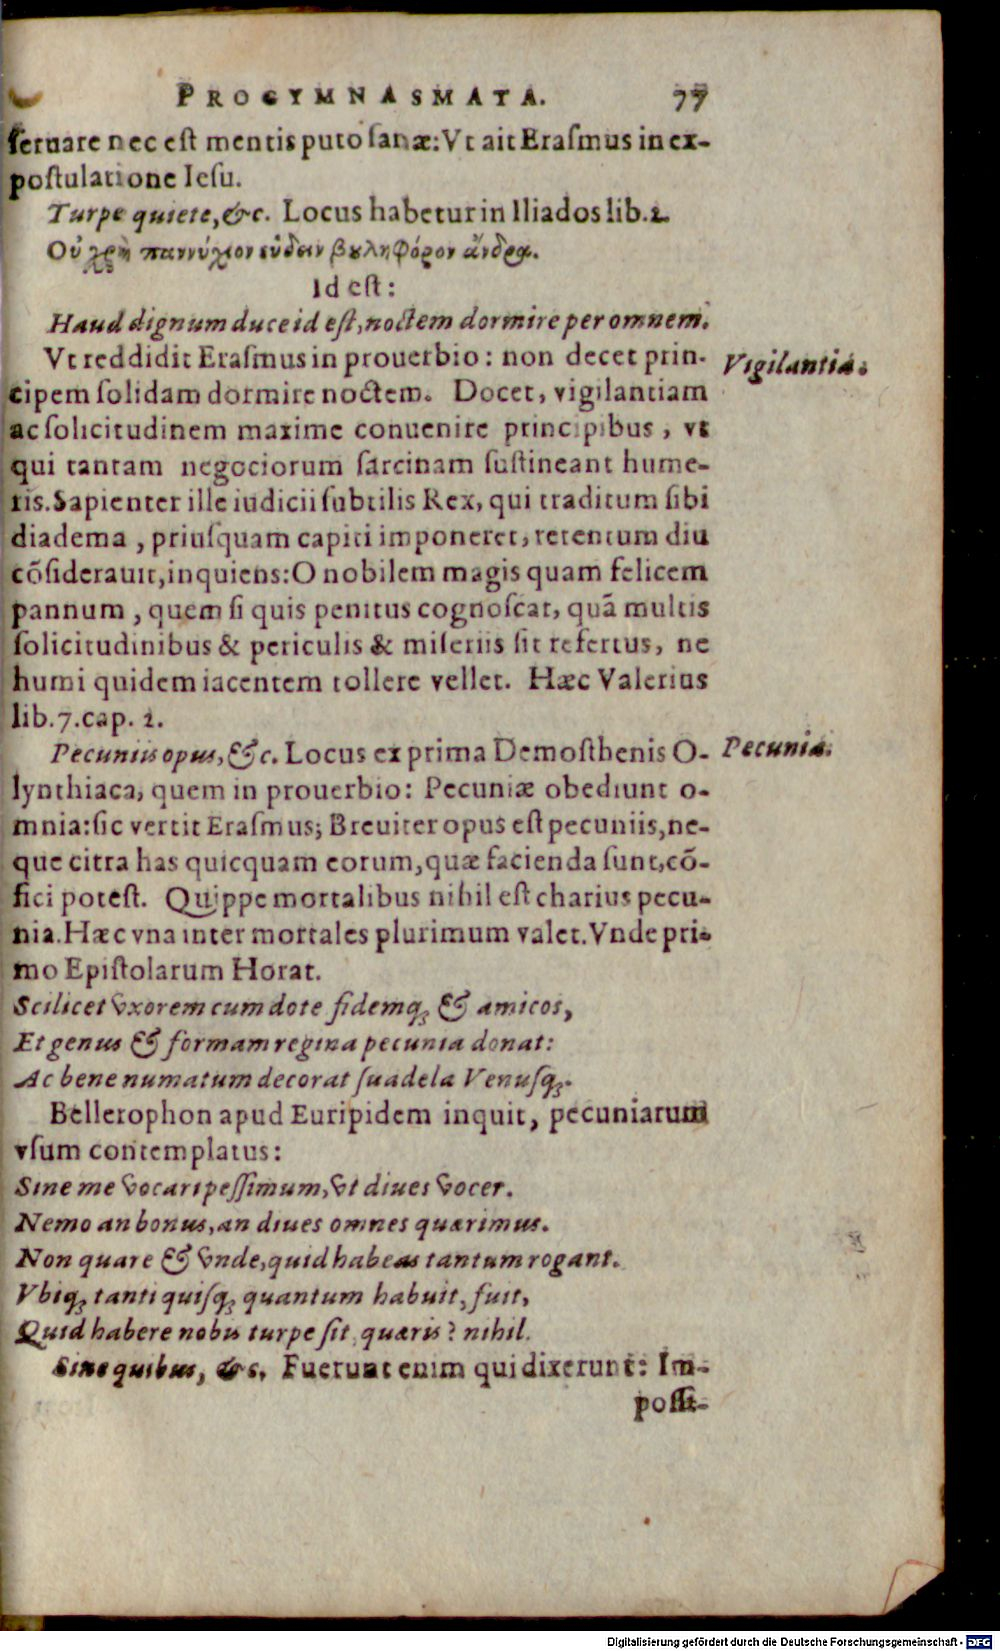 PROGYMNASMATA. 77
seruare nec est mentis puto sanæ: Vt ait Erasmus in ex-
postulatione Iesu.
Turpe quiete, &c. Locus habetur in Iliados lib. 2.
Οὐ χρὴ παννύχιον εὕδειν βουληφόρον ἄνδρα.
Id est:
Haud dignum duce id est, noctem dormire per omnem.
Vt reddidit Erasmus in prouerbio: non decet prin-
Vigilantia.
cipem solidam dormire noctem. Docet, vigilantiam
ac solicitudinem maxime conuenire principibus, vt
qui tantam negociorum sarcinam sustineant hume-
ris. Sapienter ille iudicii subtilis Rex, qui traditum sibi
diadema, priusquam capiti imponeret, retentum diu
cõsiderauit, inquiens: O nobilem magis quam felicem
pannum, quem si quis penitus cognoscat, quã multis
solicitudinibus & periculis & miseriis sit refertus, ne
humi quidem iacentem tollere vellet. Hæc Valerius
lib. 7. cap. 2.
Pecuniis opus, &c. Locus ex prima Demosthenis O-
Pecunia.
lynthiaca, quem in prouerbio: Pecuniæ obediunt o-
mnia: sic vertit Erasmus; Breuiter opus est pecuniis, ne-
que citra has quicquam eorum, quæ facienda sunt, cõ-
fici potest. Quippe mortalibus nihil est charius pecu-
nia. Hæc vna inter mortales plurimum valet. Vnde pri-
mo Epistolarum Horat.
Scilicet vxorem cum dote fidemq; & amicos,
Et genus & formam regina pecunia donat:
Ac bene numatum decorat suadela Venusq;.
Bellerophon apud Euripidem inquit, pecuniarum
vsum contemplatus:
Sine me vocari pessimum, vt diues vocer.
Nemo an bonus, an diues omnes quærimus.
Non quare & vnde, quid habeas tantum rogant.
Vbiq; tanti quisq; quantum habuit, fuit,
Quid habere nobis turpe sit quæris? nihil.
Sine quibus, &c. Fuerunt enim qui dixerunt: Im-
possi-
Digitalisierung gefördert durch die Deutsche Forschungsgemeinschaft - DFG